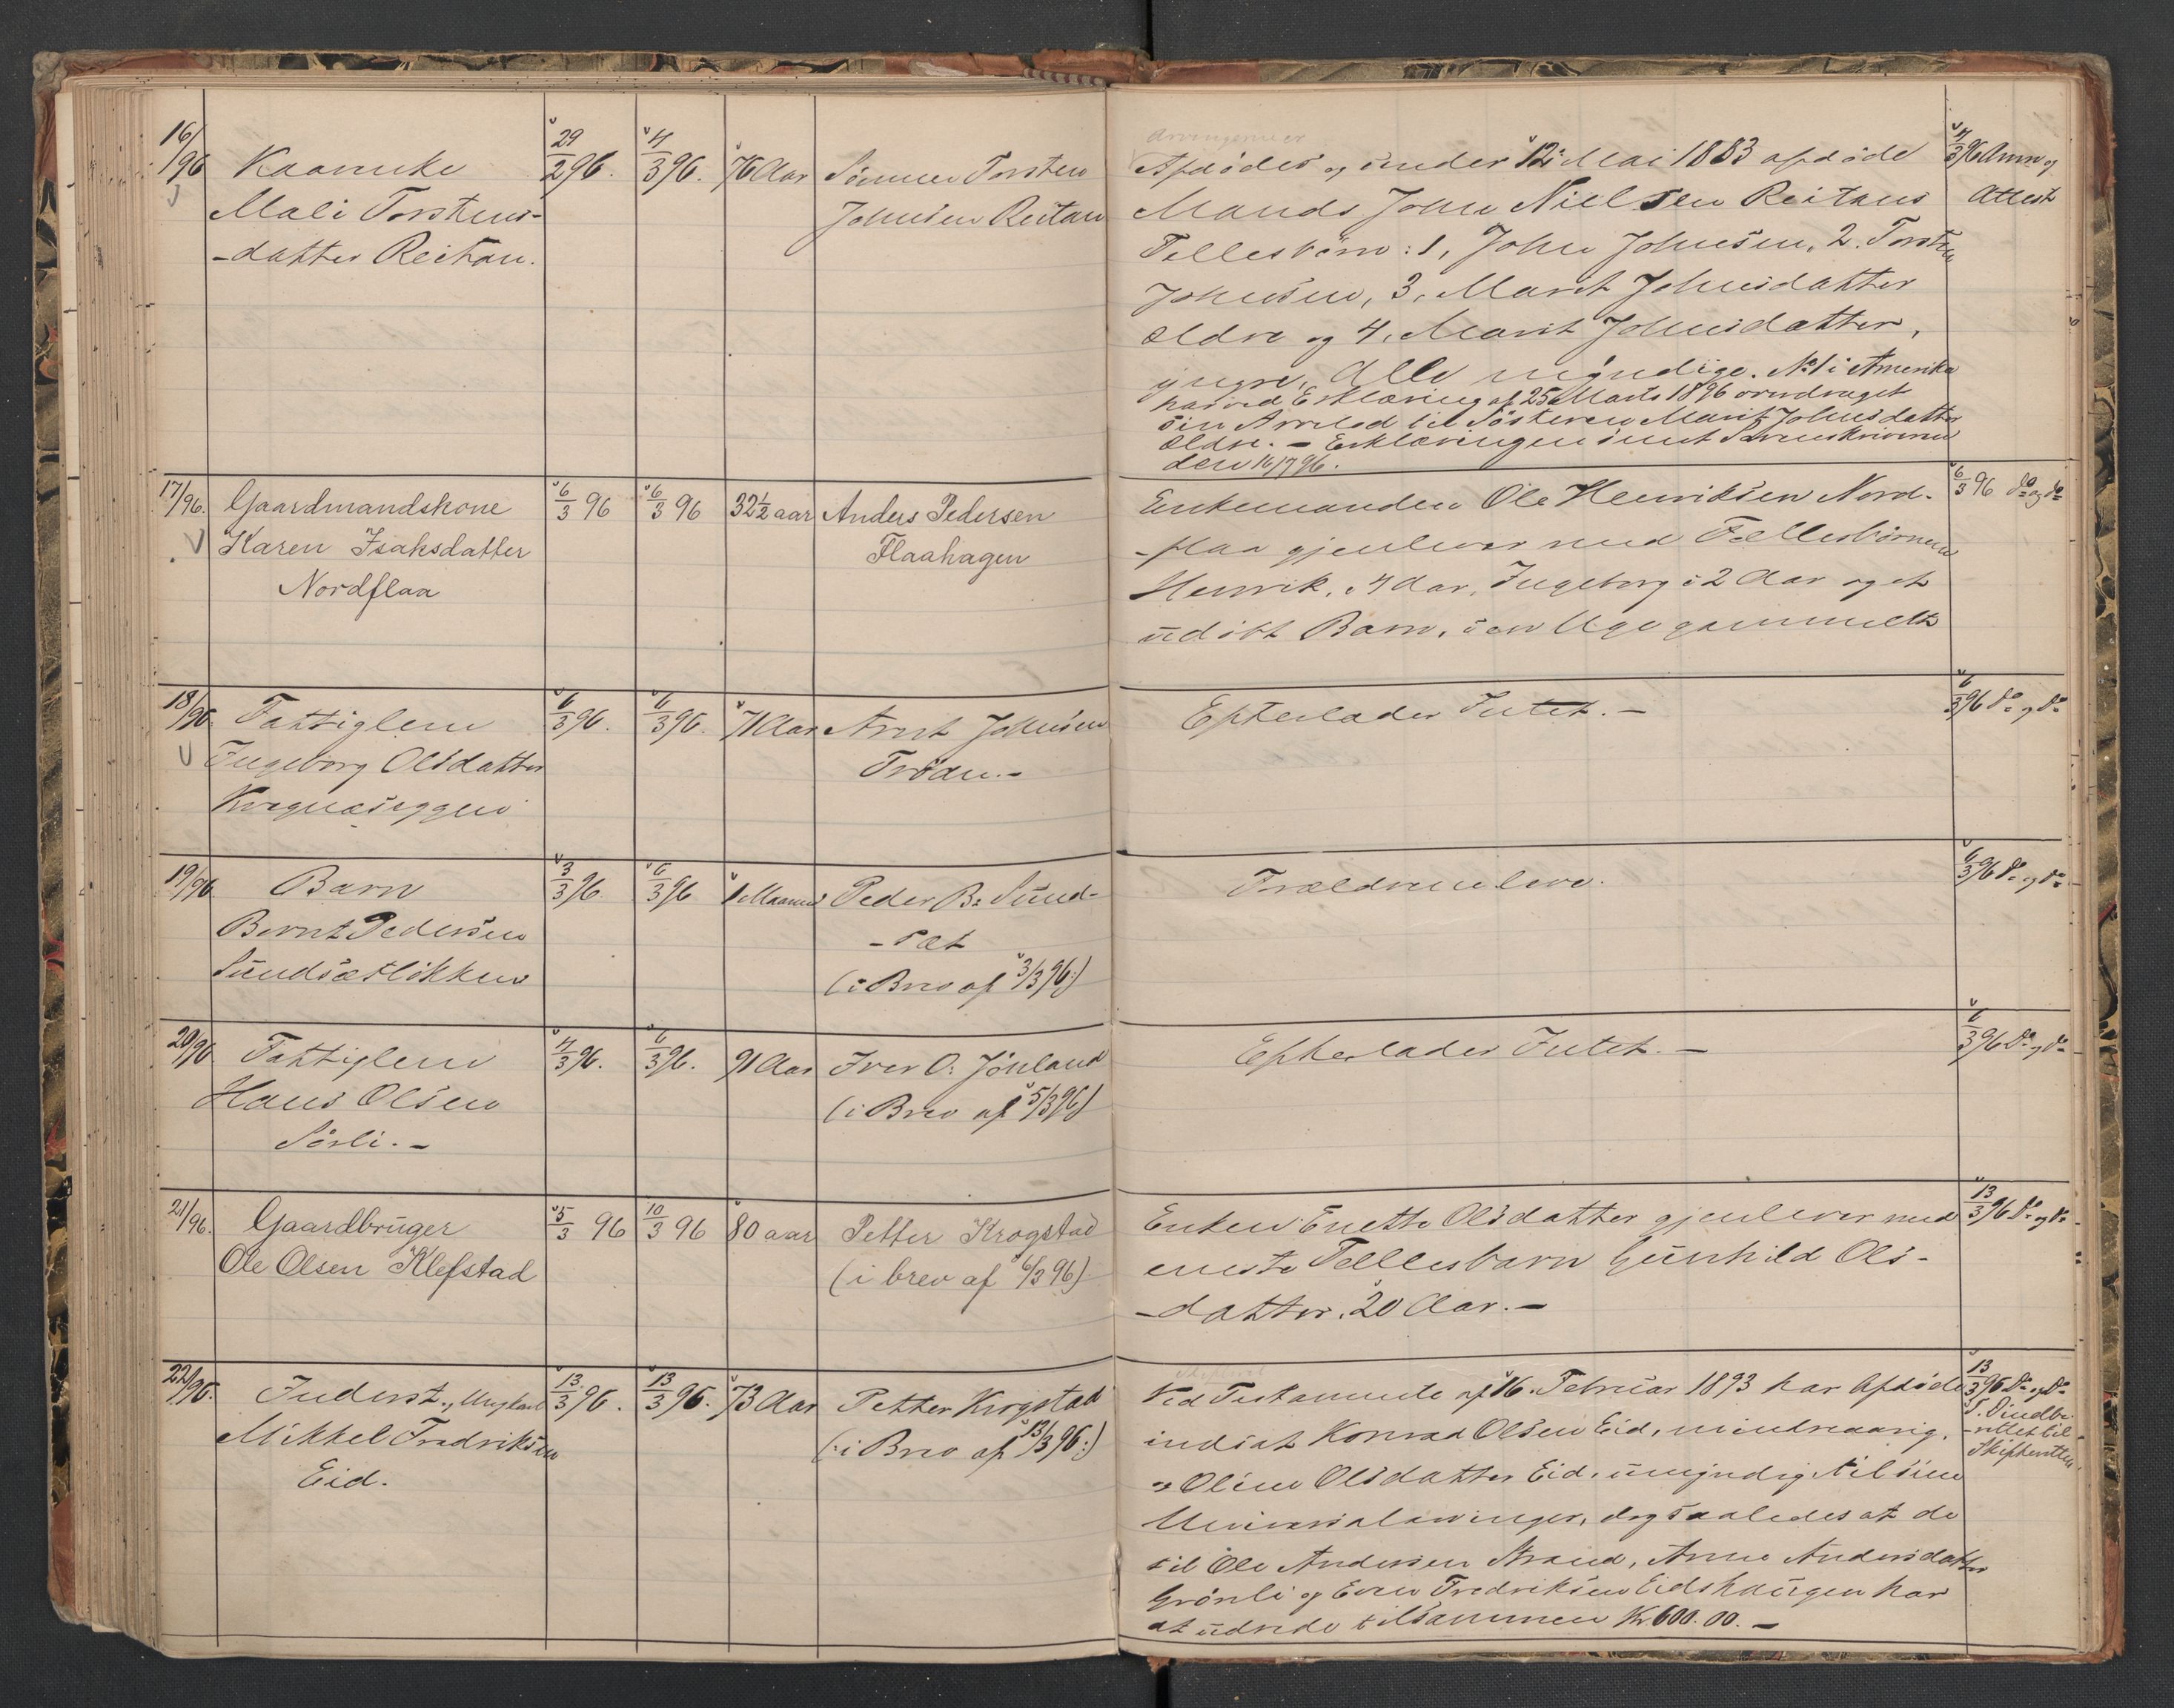 16/96 Kaarenke 29/2 96. 4/3 96. 76 Aar Sönnen Torsten
Mali Torstens- Johnsen Reitan
-datter Reitan.
Arvingerne er
Afdødes og under 12 Mai 1883 afdøde
Mands John Nielsen Reitans
Fellesbörn: 1, John Johnsen, 2. Torsten
Johnsen, 3, Marit Johnsdatter
ældre og 4, Marit Johnsdatter,
yngre, Alle myndige. No 1 i Amerika
har ved Erklæring af 25 Marts 1896 overdraget
sin Arvelod til Sösteren Marit Johnsdatter
ældre. - Erklæringen sendt Sorenskriveren
den 16/7 96.
4/3 96 Anm og
Attest
17/96. Gaardmandskone 6/3 96 6/3 96 32 1/2 aar Anders Pedersen
Karen Isaksdatter Flaahagen
Nordflaa
Enkemanden Ole Henriksen Nord-
-flaa gjenlever med Fellesbörnene
Henrik, 4 Aar, Ingeborg 2 Aar og et
udöbt Barn, en Uge gammelt
6/3 96 do og do
18/96 Fattiglem 6/3 96. 6/3 96. 71 Aar Arnt Johnsen
Ingeborg Olsdatter Tröan.-
Kregnæseggen
Efterlader Intet. -
6/3 96 do og do
19/96 Barn 3/3 96 6/3 96 1 Maaned Peder B. Sund-
Bernt Pedersen -sæt
Sundsætlökken (i Brev af 3/3 96)
Forældrene leve.
6/3 96 do og do
20/96 Fattiglem 4/3 96. 6/3 96. 91 Aar Iver O. Jönland
Hans Olsen (i Brev af 5/3 96)
Sörli. -
Efterlader Intet. -
6/3 96 do og do
21/96. Gaardbruger 5/3 96 10/3 96 80 aar Petter Krogstad
Ole Olsen Klefstad (i brev af 6/3 96)
Enken Enette Olsdatter gjenlever med
eneste Fellesbarn Gunhild Ols-
-datter, 20 Aar. -
13/3 96 do og do
22/96. Inderst, Ungkarl 13/3 96. 13/3 96. 73 Aar Petter Krogstad
Mikkel Fredriksen (i Brev af 13/3 96:)
Eid.
Ved Testamente af 16. Februar 1893 har Afdøde
indsat Konrad Olsen Eid, mindreaarig,
og Oline Olsdatter Eid, umyndig til sine
Universalarvinger, dog saaledes at de
til Ole Andersen Strand, Anne Andersdatter
Grönli og Even Fredriksen Eidshaugen har
at udrede tilsammen Kr. 600.00. -
13/3 96 do og do
T. Indbe-
-rettet til
Skifteretten.